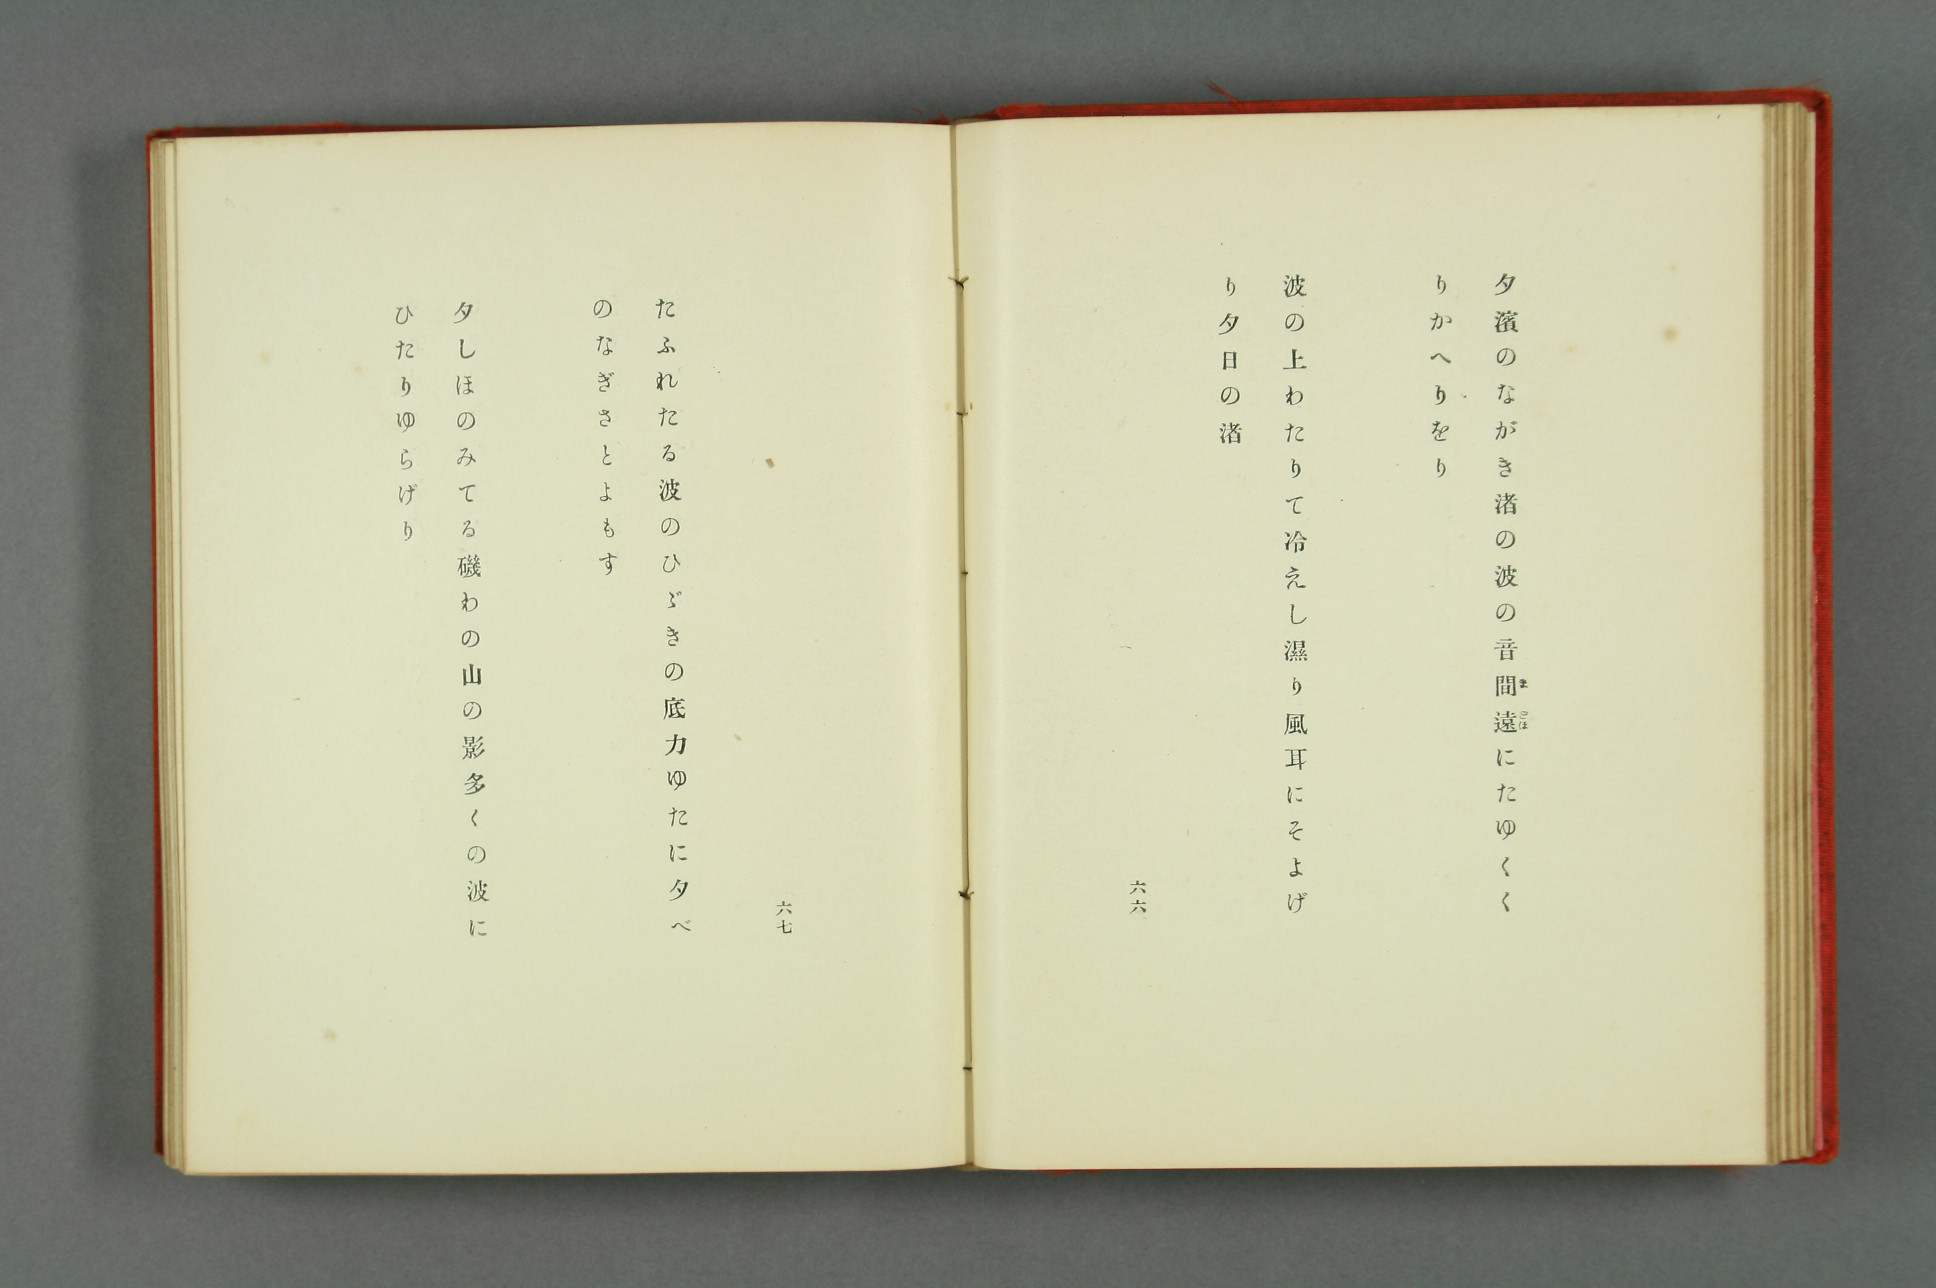 夕濱のながき渚の波の音間遠にたゆくく
りかへりをり
波の上わたりて冷えし濕り風耳にそよげ
り夕日の渚
六六
六七
たふれたる波のひゞきの底力ゆたに夕べ
のなぎさとよもす
夕しほのみてる磯わの山の影多くの波に
ひたりゆらげり